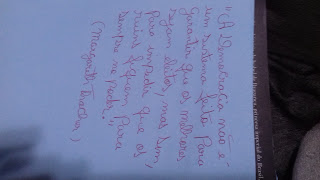 "(A) Democracia não é
um sistema feito para
garantir que os melhores
sejam eleitos, mas sim,
para impedir que os
ruins fiquem para
sempre no poder."
(Margareth Thatcher)